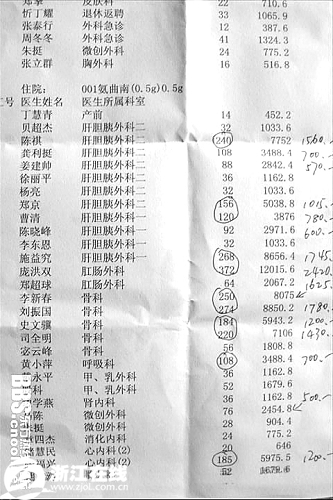 皮肤科 22 710.6
忻丁耀 退休返聘 33 1065.9
张泰行 外科急诊 12 387.6
周冬冬 外科急诊 41 1324.3
朱挺 微创外科 24 775.2
张立群 胸外科 16 516.8
住院: 001氨曲南(0.5g)0.5g
工号 医生姓名 医生所属科室
丁慧青 产前 14 452.2
贝超杰 肝胆胰外科二 32 1033.6
陈祺 肝胆胰外科二 240 7752 1560.-
龚利挺 肝胆胰外科二 108 3488.4 700.-
姜建帅 肝胆胰外科二 88 2842.4 570.-
徐丽平 肝胆胰外科二 36 1162.8
杨亮 肝胆胰外科二 32 1033.6
郑京 肝胆胰外科二 156 5038.8 1015.-
曹清 肝胆胰外科一 120 3876 780.-
陈晓峰 肝胆胰外科一 92 2971.6 600.-
李东恩 肝胆胰外科一 32 1033.6
施益究 肝胆胰外科一 268 8656.4 1745.-
庞洪双 肛肠外科 372 12015.6 2420.-
郑超球 肛肠外科 64 2067.2 1625
李新春 骨科 250 8075
刘振国 骨科 274 8850.2 1780.-
史文骥 骨科 184 5943.2 1200.-
司全明 骨科 220 7106 1430.-
宓云峰 骨科 56 1808.8
黄小萍 呼吸科 108 3488.4 700.-
永平 甲、乳外科 36 1162.8
科 甲、乳外科 52 1679.6
学燕 肾内科 36 1162.8 500.-
陈 微创外科 76 2454.8
挺 微创外科 28 904.4
四杰 消化内科 24 775.2
慧民 心内科(2) 20 646
兴 心内科(2) 185 5975.5 1200.-
52 1679.6
BBS.cnool
浙江在线
www.zjol.com.cn